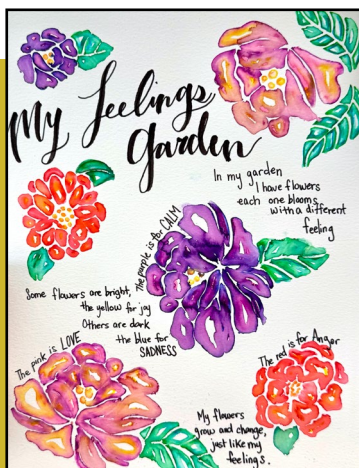 My feelings
Garden
In my garden
I have flowers
each one blooms
with a different
feeling
The purple is for CALM
Some flowers are bright,
the yellow for joy
Others are dark
the blue for
SADNESS
The pink is LOVE
The red is for Anger
My flowers
grow and change,
just like my
feelings.